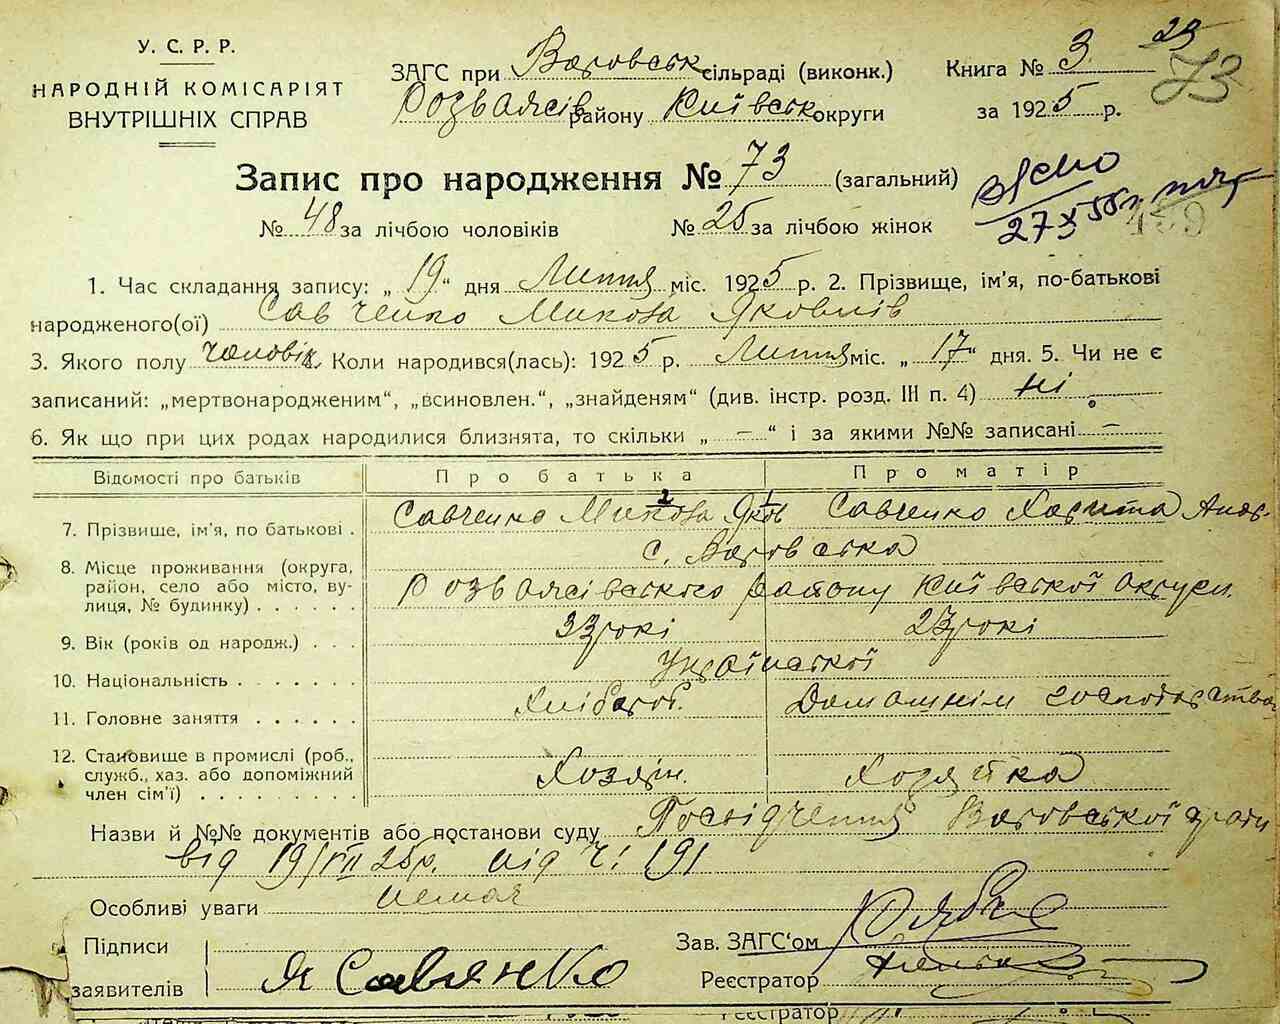 У. С. Р. Р.
НАРОДНІЙ КОМІСАРІЯТ
ВНУТРІШНІХ СПРАВ
ЗАГС при сільраді (виконк.)
району Київськ округи
Книга № 3
за 1925 р.
23
73
Запис про народження № 73 (загальний)
№ 48 за лічбою чоловіків № 25 за лічбою жінок
1. Час складання запису: „ 19 “ дня Липня міс. 1925 р. 2. Прізвище, ім'я, по-батькові
народженого(ої) Савченко Микола Яковлів
3. Якого полу чоловік. Коли народився(лась): 1925 р. Липня міс. „ 17 “ дня. 5. Чи не є
записаний: „мертвонародженим“, „всиновлен.“, „знайденям“ (див. інстр. розд. III п. 4) ні.
6. Як що при цих родах народилися близнята, то скільки „ – “ і за якими №№ записані –
Відомості про батьків Про батька Про матір
7. Прізвище, ім'я, по батькові . Савченко Микола Яков Савченко Харита
8. Місце проживання (округа,
район, село або місто, ву-
лиця, № будинку) . . . . . . с. району Київської округи
9. Вік (років од народж.) . . . 33 рокі 23 рокі
10. Національність . . . . . . . Української
11. Головне заняття . . . . . . Хлібороб. Домашнім господарством
12. Становище в промислі (роб.,
служб., хаз. або допоміжний
член сім'ї) . . . . . . . . Хозяїн. Хозяйка
Назви й №№ документів або постанови суду Посвідчення
від 19/VII 25 р. під ч. 191
Особливі уваги немає
Підписи
заявителів Я Савчянко
Зав. ЗАГС'ом
Реєстратор
Реєстратор